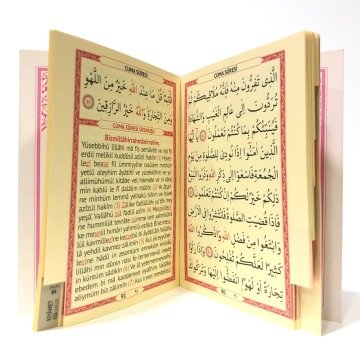 CUMA SÛRESİ
الَّذِي تَفِرُّونَ مِنْهُ فَإِنَّهُ مُلَاقِيكُمْ ثُمَّ
تُرَدُّونَ إِلَى عَالِمِ الْغَيْبِ وَالشَّهَادَةِ
فَيُنَبِّئُكُمْ بِمَا كُنْتُمْ تَعْمَلُونَ ﴿٨﴾ يَا أَيُّهَا
الَّذِينَ آمَنُوا إِذَا نُودِيَ لِلصَّلَاةِ مِنْ يَوْمِ
الْجُمُعَةِ فَاسْعَوْا إِلَى ذِكْرِ اللهِ وَذَرُوا الْبَيْعَ
ذَلِكُمْ خَيْرٌ لَكُمْ إِنْ كُنْتُمْ تَعْلَمُونَ ﴿٩﴾
فَإِذَا قُضِيَتِ الصَّلَاةُ فَانْتَشِرُوا فِي الْأَرْضِ
وَابْتَغُوا مِنْ فَضْلِ اللهِ وَاذْكُرُوا اللهَ
كَثِيرًا لَعَلَّكُمْ تُفْلِحُونَ ﴿١٠﴾ وَإِذَا رَأَوْا
تِجَارَةً أَوْ لَهْوًا انْفَضُّوا إِلَيْهَا وَتَرَكُوكَ
CUMA SÛRESİ
قَائِمًا قُلْ مَا عِنْدَ اللهِ خَيْرٌ مِنَ اللَّهْوِ
وَمِنَ التِّجَارَةِ وَاللهُ خَيْرُ الرَّازِقِينَ ﴿١١﴾
CUMA SÛRESİ OKUNUŞU
Bismillâhirrahmânirrahîm.
Yüsebbihu lillâhi mâ fis semâvâti ve mâ fil
erdıl melikil kuddûsil azîzil hakîm (1) Hüvel
lezî bease fil ümmiyyîne rasûlen minhüm
yetlû aleyhim âyâtihî ve yüzekkîhim ve yü-
allimühümül kitâbe vel hıkmete ve in kânû
min kablü le fî dalâlim mübîn (2) Ve âharî-
ne minhüm lemmâ yelhakû bihim ve hüvel
azîzül hakîm (3) Zâlike fadlullâhi yü'tîhi mey
yeşâ'. Vallâhü zül fadlil azîm (4) Meselülle-
zîne hummilüt tevrâte sümme lem yahmilûhâ
ke meselil hımâri yahmilü esfârâ. Bi'se mese-
lül kavmillezîne kezzebû bi âyâtillâh. Vallâhü
lâ yehdil kavmez zâlimîn (5) Kul yâ eyyühel-
lezîne hâdû in zeamtüm enneküm evliyâü
lillâhi min dûnin nâsi fe temennevül mevte
in küntüm sâdikîn (6) Ve lâ yetemennevnehû
ebedem bi mâ kaddemet eydîhim. Vallâhü
alîymüm biz zâlimîn (7) Kul innel mevtellezî
95
KIYAMET